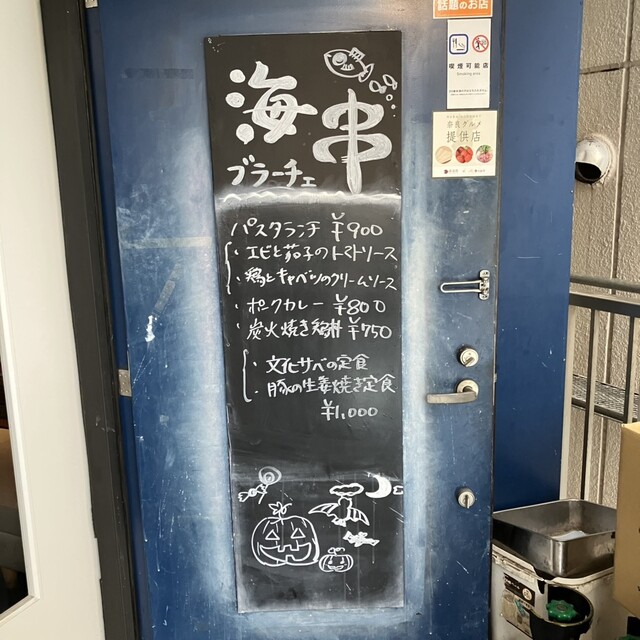 話題のお店
喫煙可能店
Smoking area
奈良グルメ
提供店
海串
ブラーチェ
パスタランチ ¥900
・エビと茄子のトマトソース
・鶏とキャベツのクリームソース
ポークカレー ¥800
炭火焼き鶏丼 ¥750
・文化サバの定食
・豚の生姜焼き定食
¥1,000